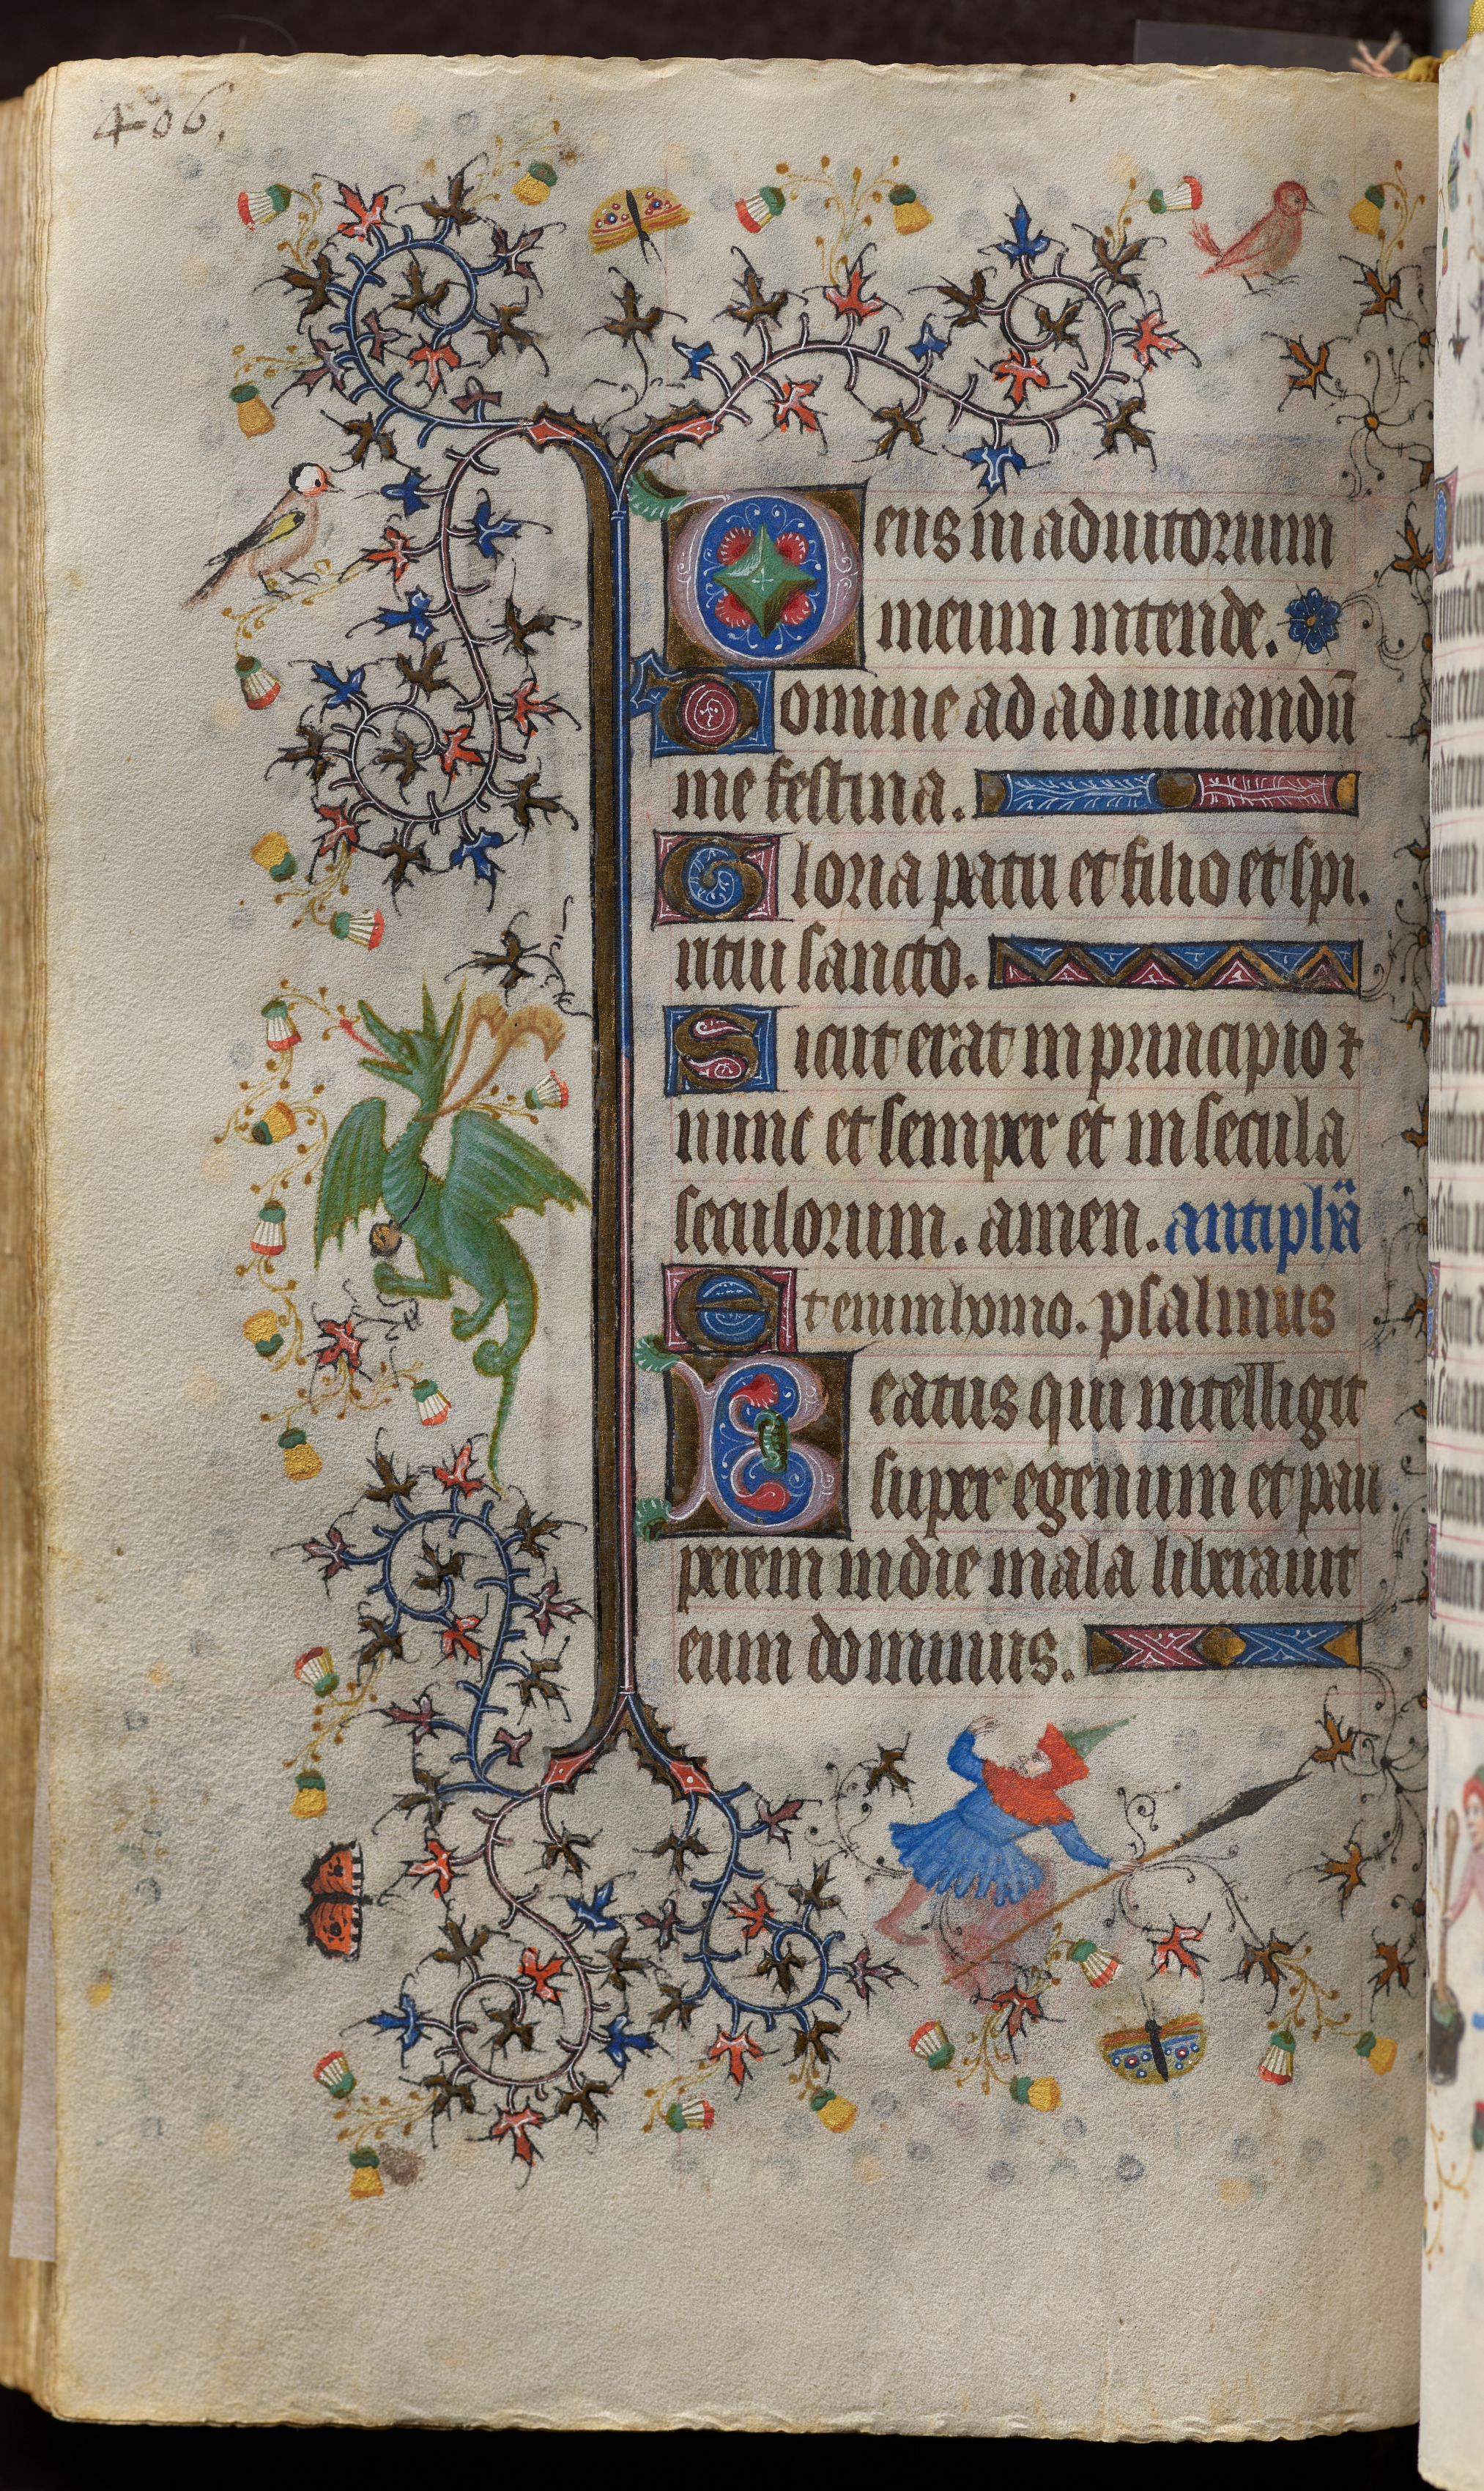 406.
Deus in adiutorium
meum intende.
Domine ad adiuuandũ
me festina.
Gloria patri et filio et spi.
ritui sancto.
Sicut erat in principio ⁊
nunc et semper et in secula
seculorum. amen. antiphã
Et enim homo. psalmus
Beatus qui intelligit
super egenum et pau.
perem in die mala liberauit
eum dominus.